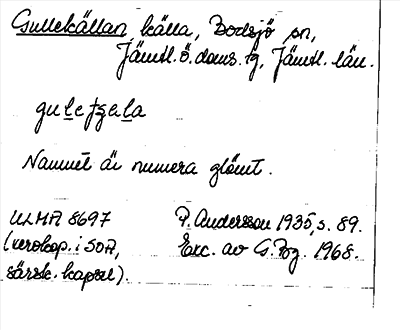 Gullekällan, källa, Bodsjö sn,
Jämtl. ö. doms. tg, Jämtl. län.
gulefzela
Namnet är numera glömt.
ULMA 8697 P. Andersson 1935, s. 89.
(xerokop. i SOA, Exc. av G. Roz. 1968.
särsk. kapsel).